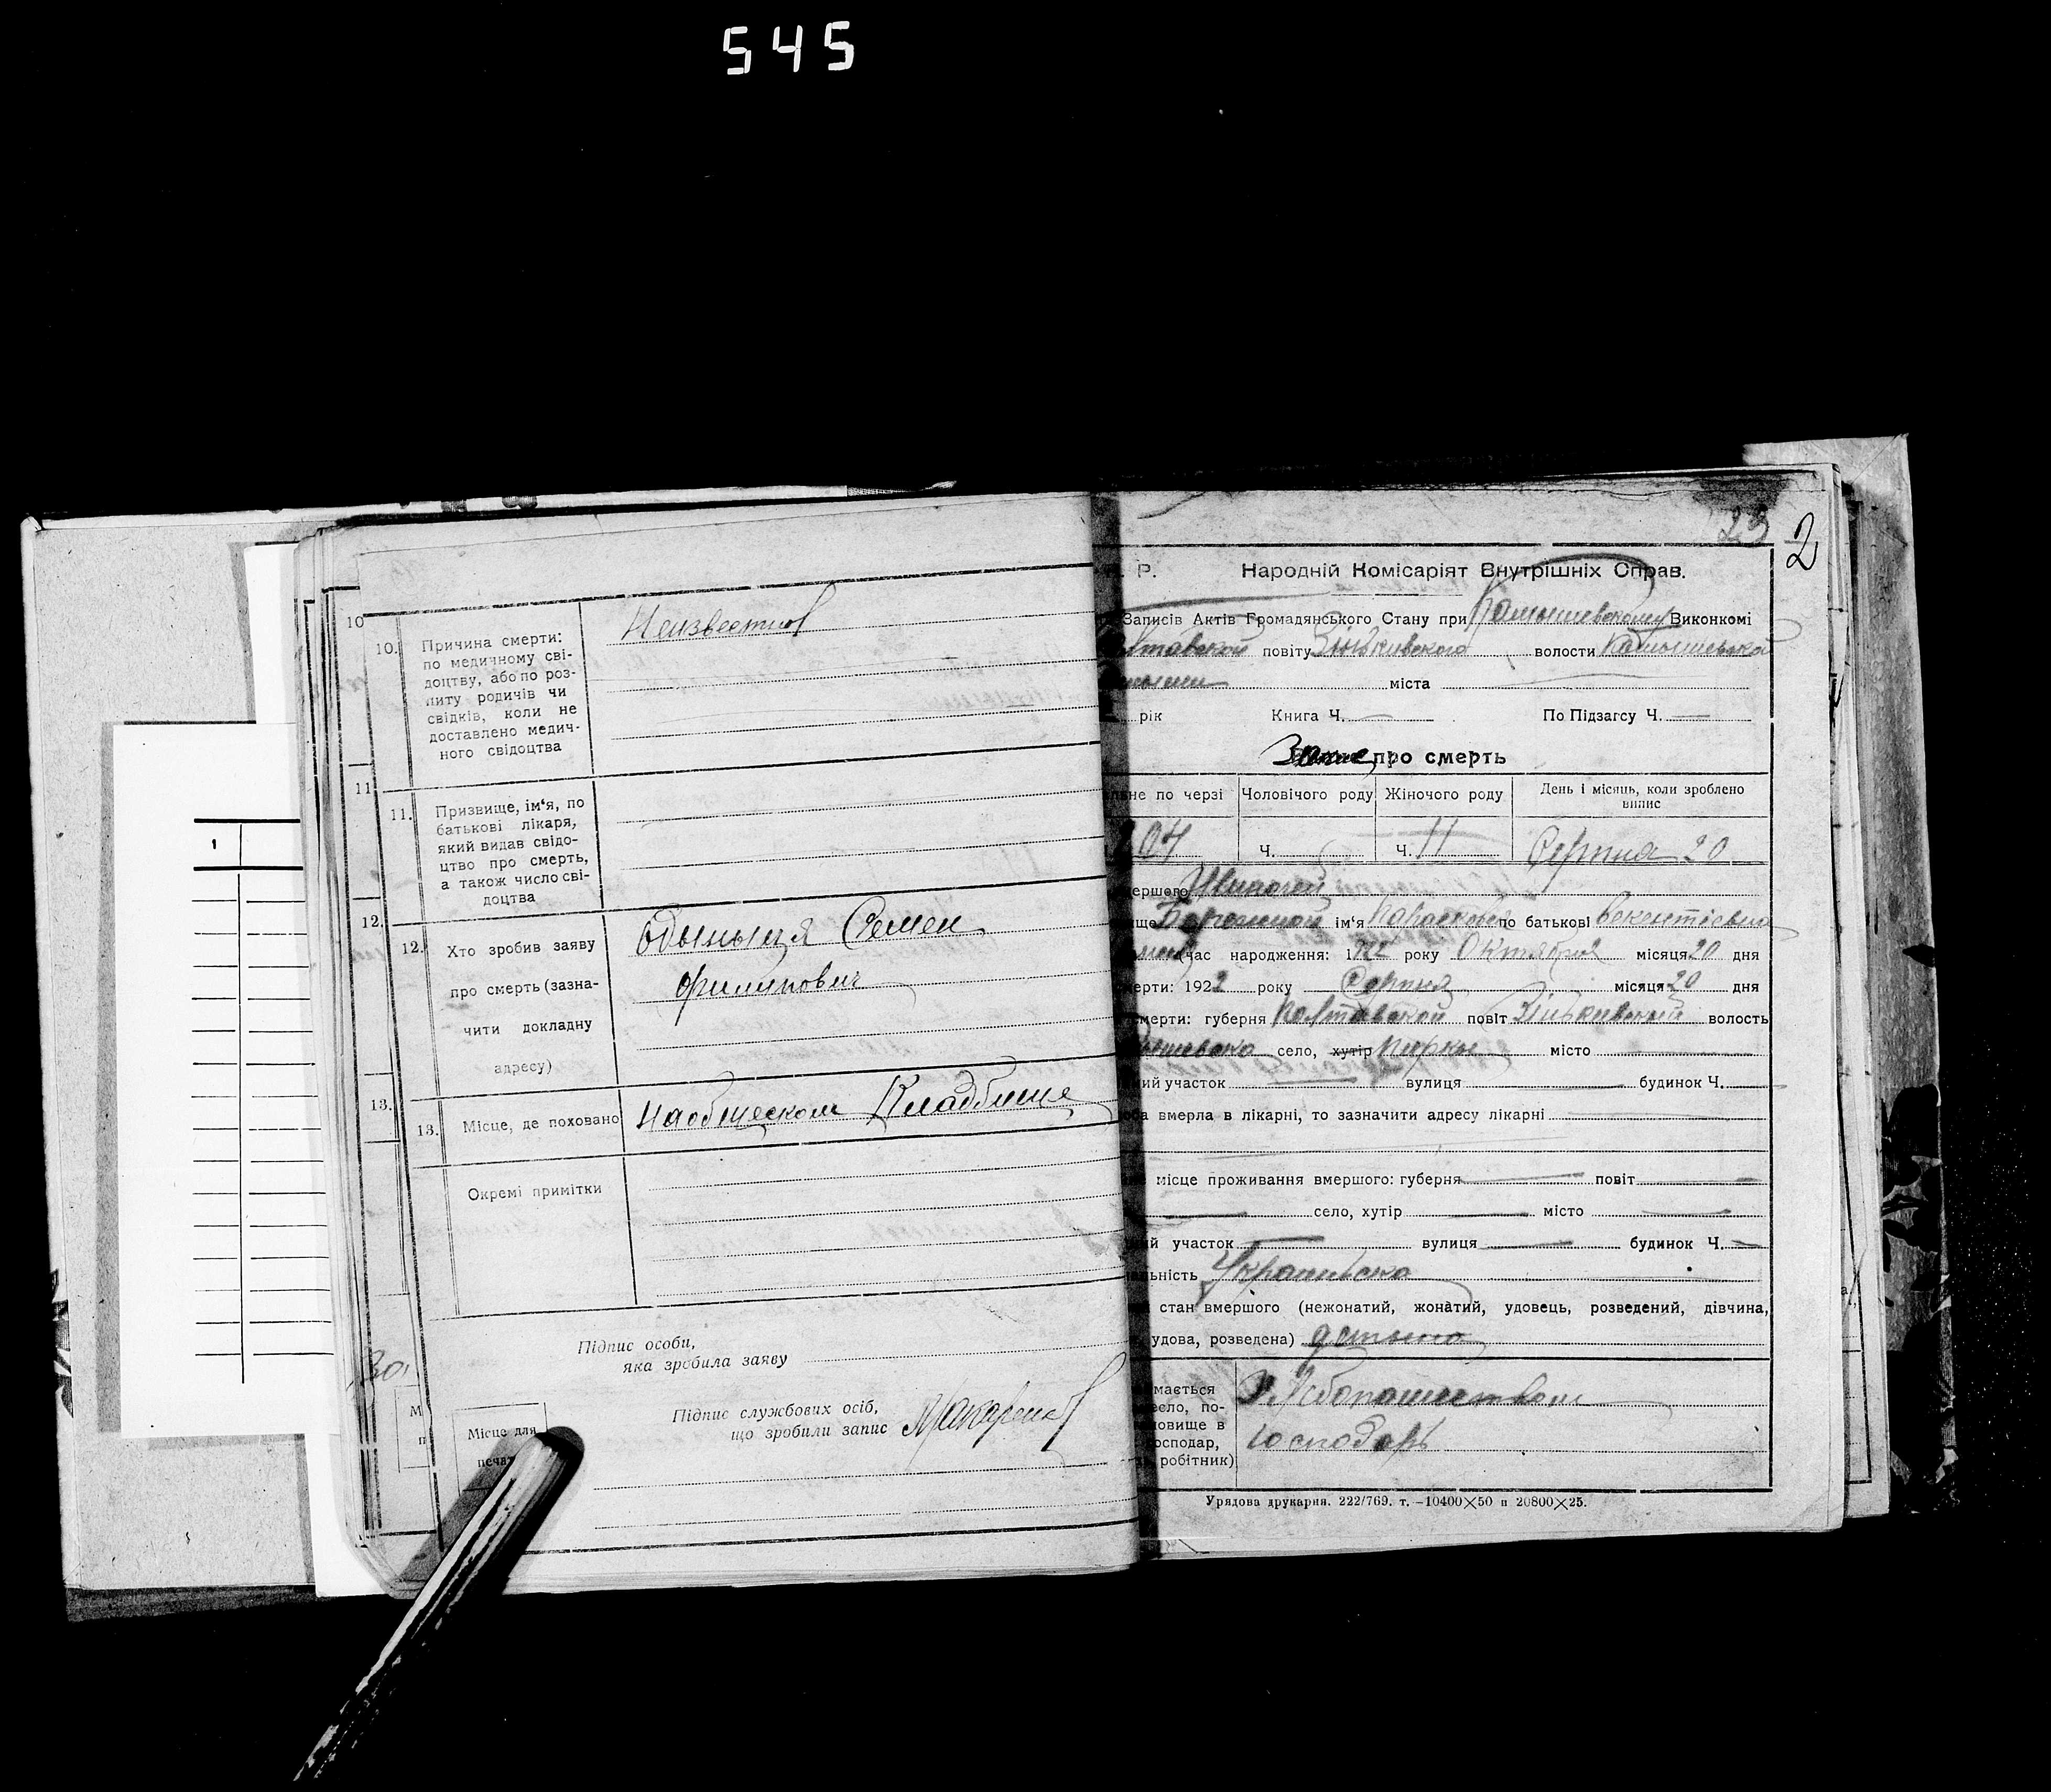 545
10
10. Причина смерти:
по медичному сві-
доцтву, або по роз-
питу родичів чи
свідків, коли не
доставлено медич-
ного свідоцтва
Неизвестно
11
11. Призвище, ім‘я, по
батькові лікаря,
який видав свідо-
цтво про смерть,
а також число сві-
доцтва
12.
12. Хто зробив заяву
про смерть (зазна-
чити докладну
адресу)
Одыныця Семен
Филипович
13.
13. Місце, де поховано
На общеском Кладбище
Окремі примітки
Підпис особи,
яка зробила заяву
Підпис службових осіб,
що зробили запис
М
п
Місце для
печат
23
2
. Р. Народній Комісаріят Внутрішніх Справ.
Записів Актів Громадянського Стану при Камышевскому Виконкомі
лтавской повіту Зіньківского волости Камышевско
мыши міста
рік Книга Ч. — По Підзагсу Ч. —
про смерть
льне по черзі Чоловічого роду Жіночого роду День і місяць, коли зроблено
випис
204 Ч. Ч. 11 Серпня 20
ершого
ще ім‘я Параскове по батькові Векентіевна
час народження: 1922 року Октября місяця 20 дня
мерти: 1922 року Серпня місяця 20 дня
смерти: губерня Полтавской повіт Зіньківской волость
мышевско село, хутір Пирки місто
ий участок вулиця будинок Ч.
оба вмерла в лікарні, то зазначити адресу лікарні
місце проживання вмершого: губерня — повіт —
— село, хутір — місто —
ий участок — вулиця — будинок Ч. —
альність Украинська
стан вмершого (нежонатий, жонатий, удовець, розведений, дівчина,
удова, розведена) детына
мається
есло, по-
ловище в
осподар,
робітник)
Хлебопашеством
Господарь
Урядова друкарня. 222/769. т. —10400×50 п 20800×25.